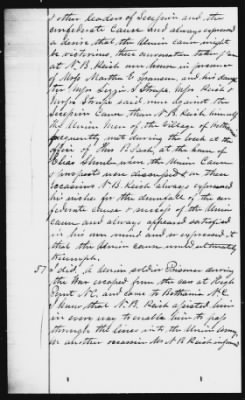 & other leaders of Secession and the
confederate Cause and always expressed
a desire, that the Union cause might
be victorious, these
at N. B. Keith own house in presence
of Miss Martha C. and his daugh
ter Miss Lizzie S. Miss Keith &
Miss said more against the
Secession Cause than N. B. Keith himself
the Union Men of the Village of
frequently met during the week at the
office of Thos B. Lash, at the house of
Elias when the Union Cause
& prospects were discussed on these
occasions N. B. Keith always expressed
his wishes for the downfall of the con
federate cause & success of the Union
cause and always appeared satisfied
in his own mind and so expressed it
that the Union cause would ultimately
triumph.
57 I did, A Union soldier Prisoner during
the War escaped from the cars at High
Point N.C. and came to Bethania N.C.
I know that N. B. Keith assisted him
in every way to enable him to pass
through the lines into the Union Army,
on another occasion Mr N B Keith